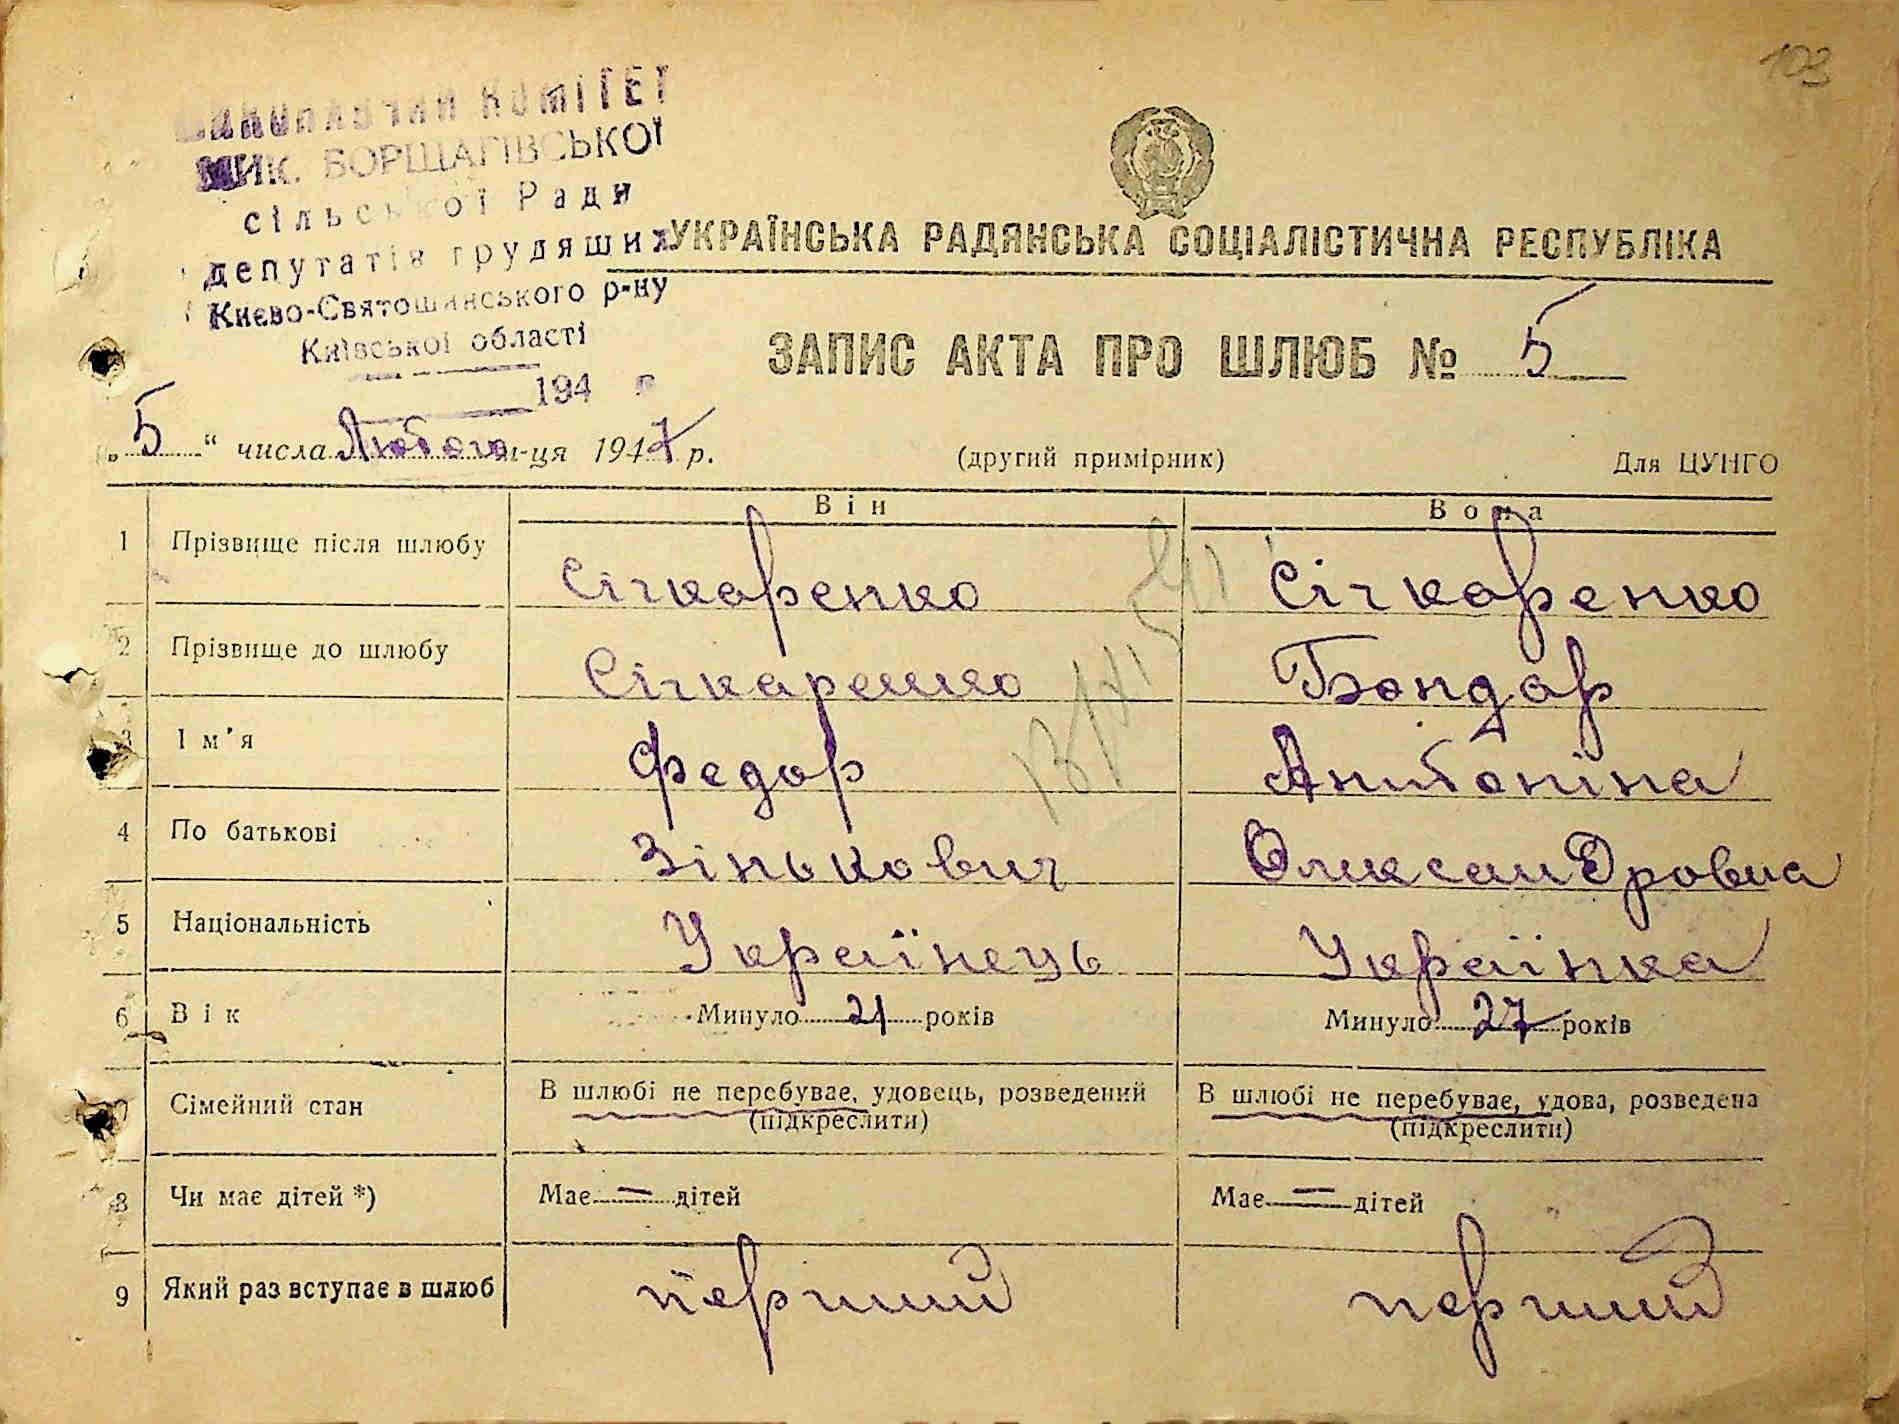 103
Виконавчий Комітет
МИК. БОРЩАГІВСЬКОЇ
сільської Ради
депутатів трудящих
Києво-Святошинського р-ну
Київської області
194 р
УКРАЇНСЬКА РАДЯНСЬКА СОЦІАЛІСТИЧНА РЕСПУБЛІКА
ЗАПИС АКТА ПРО ШЛЮБ № 5
„5“ числа Лютого м-ця 1947 р.
(другий примірник)
Для ЦУНГО
Він Вона
1 Прізвище після шлюбу Січкаренко Січкаренко
2 Прізвище до шлюбу Січкаренко Бондар
3 Ім'я Федор Антоніна
4 По батькові Зінькович Олександровна
5 Національність Українець Українка
6 Вік Минуло 21 років Минуло 27 років
7 Сімейний стан В шлюбі не перебуває, удовець, розведений В шлюбі не перебуває, удова, розведена
(підкреслити) (підкреслити)
8 Чи має дітей *) Має — дітей Має — дітей
9 Який раз вступає в шлюб перший перший